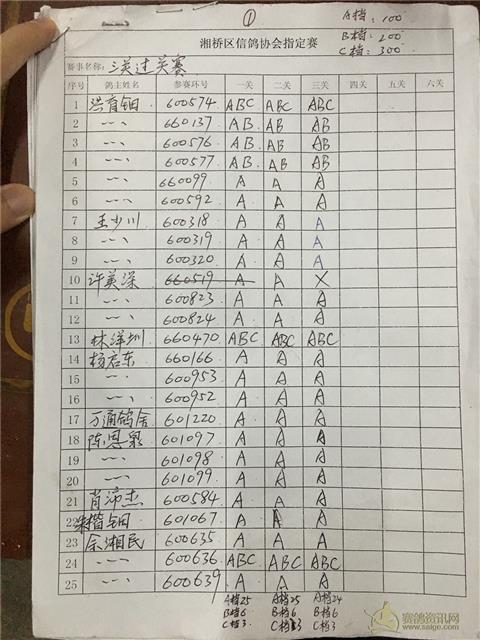 ①
A档：100
B档：200
C档：300
湘桥区信鸽协会指定赛
赛事名称：三关过关赛
序号 鸽主姓名 参赛环号 一关 二关 三关 四关 五关 六关
1 洪育钿 600574 ABC ABC ABC
2 〃 660137 AB. AB AB
3 〃 600576 AB. AB AB
4 〃 600577 AB. AB AB
5 〃 660099 A A A
6 〃 600592 A A A
7 王少川 600318 A A A
8 〃 600319 A A A
9 〃 600320 A A A
10 许英深 660519 A A X
11 〃 600823 A A A
12 〃 600824 A A A
13 林洋圳 660470 ABC ABC ABC
14 杨启东 660166 A A A
15 〃 600953 A A A
16 〃 600952 A A A
17 万通鸽舍 601220 A A A
18 陈恩泉 601097 A A A
19 〃 601098 A A A
20 〃 601099 A A A
21 肖沛杰 600584 A A A
22 楷钿 601067 A A A
23 余湘民 600635 A A A
24 〃 600636 ABC ABC ABC
25 〃 600639 A A A
A档25 A档25 A档24
B档6 B档6 B档6
C档3 C档3 C档3
赛鸽资讯网
www.saige.com